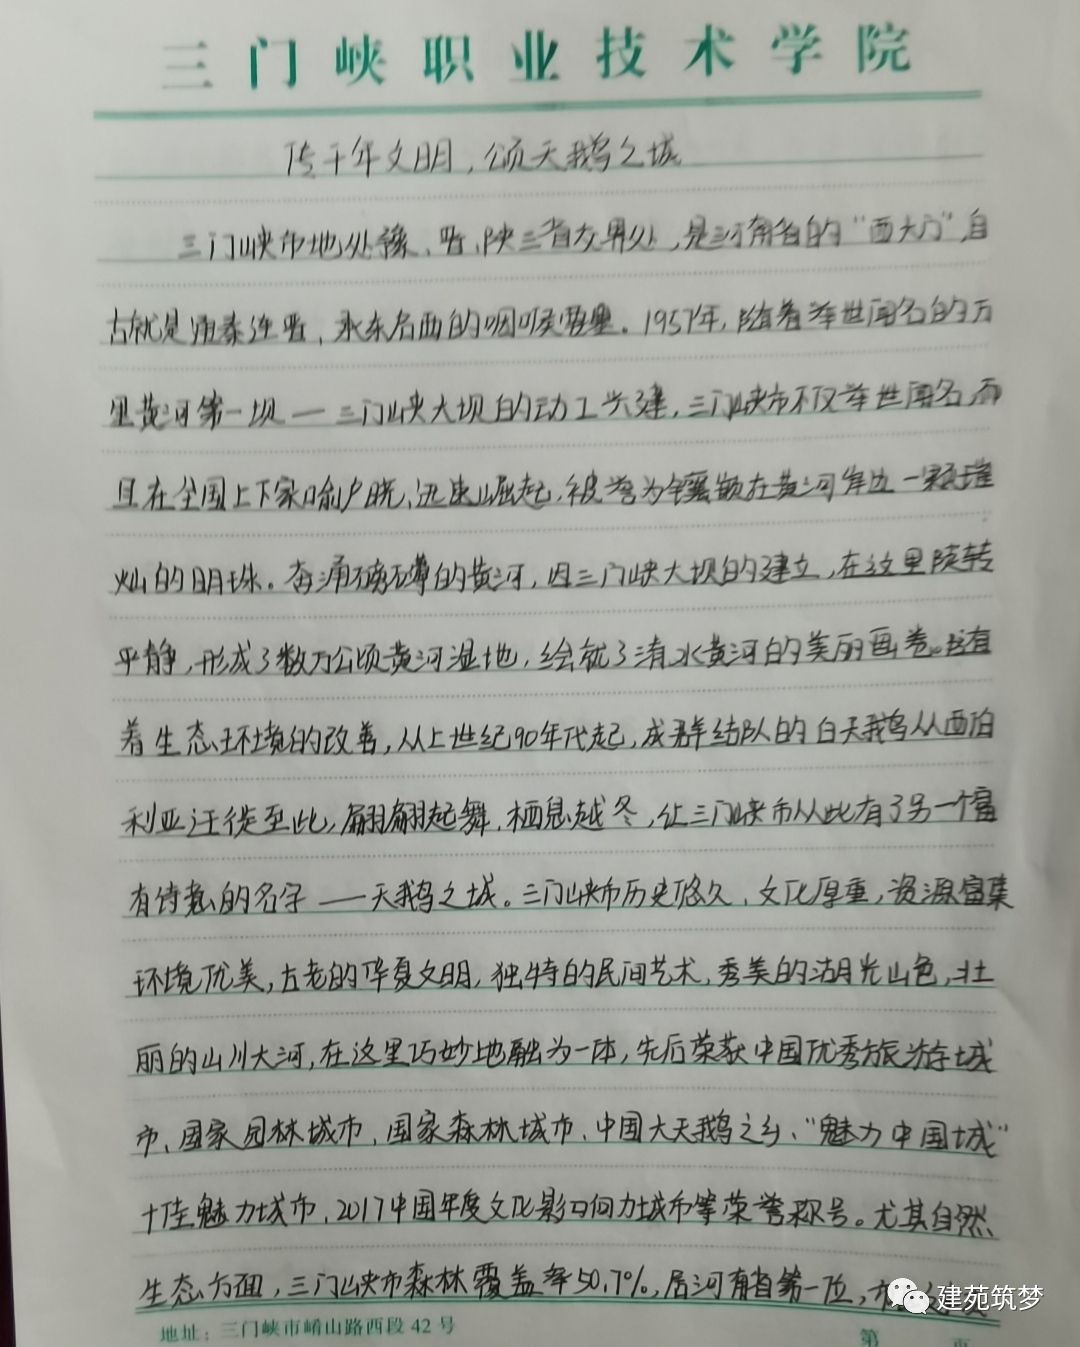 三门峡职业技术学院
传千年文明，颂天鹅之城
三门峡市地处豫、晋、陕三省交界处，是河南省的“西大门”，自
古就是通秦连晋、承东启西的咽喉要塞。1957年，随着举世闻名的万
里黄河第一坝——三门峡大坝的动工兴建，三门峡市不仅举世闻名，而
且在全国上下家喻户晓，迅速崛起，被誉为镶嵌在黄河岸边一颗璀
灿的明珠。奔涌磅礴的黄河，因三门峡大坝的建立，在这里陡转
平静，形成了数万公顷黄河湿地，绘就了清水黄河的美丽画卷。随有
着生态环境的改善，从上世纪90年代起，成群结队的白天鹅从西伯
利亚迁徙至此，翩翩起舞，栖息越冬，让三门峡市从此有了另一个富
有诗意的名字——天鹅之城。三门峡市历史悠久、文化厚重，资源富集
环境优美，古老的华夏文明，独特的民间艺术，秀美的湖光山色，壮
丽的山川大河，在这里巧妙地融为一体，先后荣获中国优秀旅游城
市、国家园林城市、国家森林城市、中国大天鹅之乡、“魅力中国城”
十佳魅力城市、2017中国年度文化影响力城市等荣誉称号。尤其自然、
生态方面，三门峡市森林覆盖率50.7%，居河南省第一位，市
地址：三门峡市崤山路西段42号
第 页
建苑筑梦